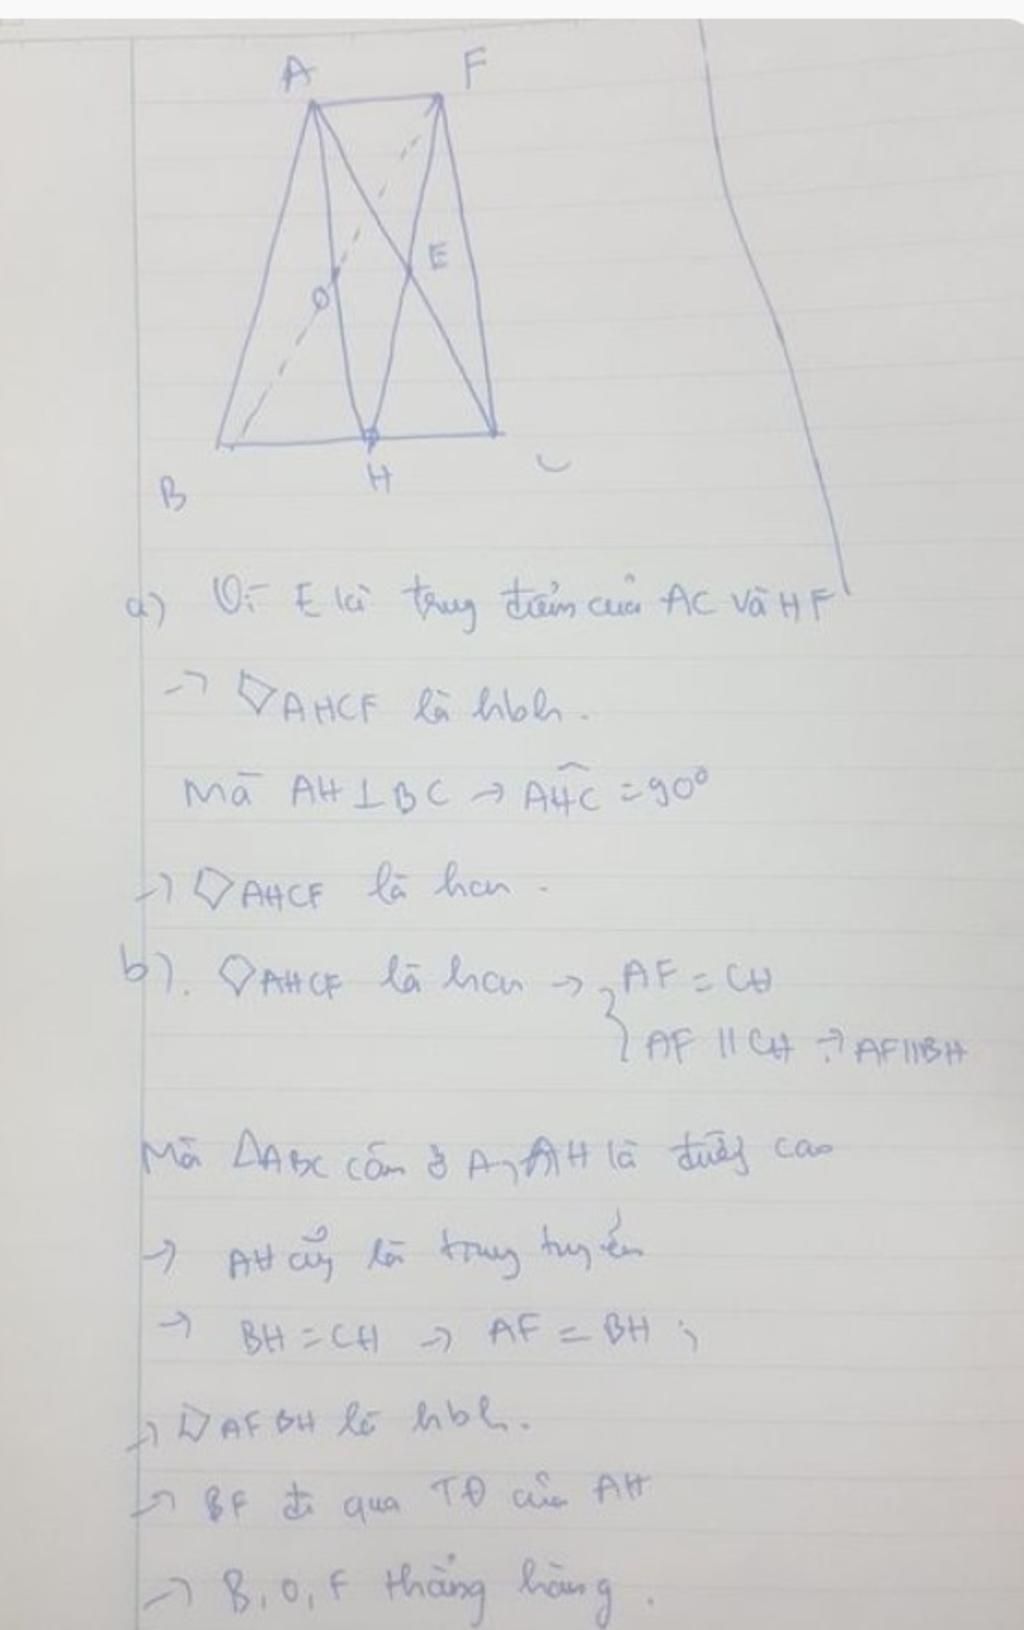 A F
E
O
B H C
a) Vì E là trung điểm của AC và HF
→ ▱AHCF là hbh.
Mà AH ⊥ BC → AHC = 90°
→ ▱AHCF là hcn.
b). ▱AHCF là hcn → { AF = CH
AF // CH → AF // BH
Mà ΔABC cân ở A, AH là đường cao
→ AH cũng là trung tuyến
→ BH = CH → AF = BH ;
→ ▱AFBH là hbh.
→ BF đi qua TĐ của AH
→ B, O, F thẳng hàng.